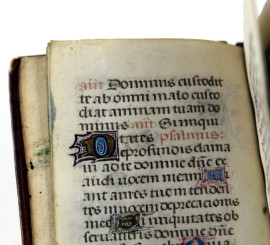 ant Dominus custodit
te ab omni malo custo
diat animam tuam do
minus ant Si iniqui
tates psalmus:
De profundis clama
vi ad te domine dñe ex
audi vocem meam Fi
ant aures tue intenden
tes in vocem deprecationis
mee Si iniquitates ob
servaveris domine dñe